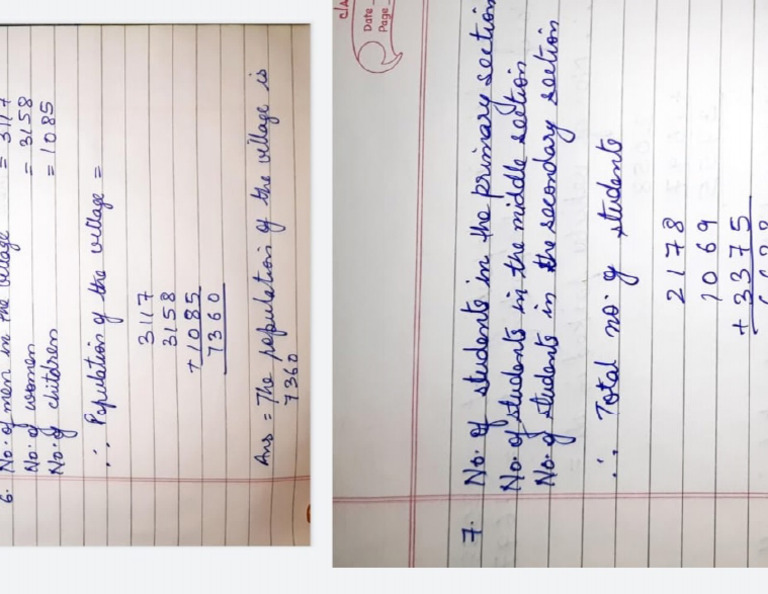 6. No. of men in the village = 3117
No. of women = 3158
No. of children = 1085
∴ Population of the village =
3117
3158
+1085
7360
Ans = The population of the village is
7360
Date
Page
7. No. of students in the primary section
No. of students in the middle section
No. of students in the secondary section
∴ Total no. of students
2178
1069
+3375